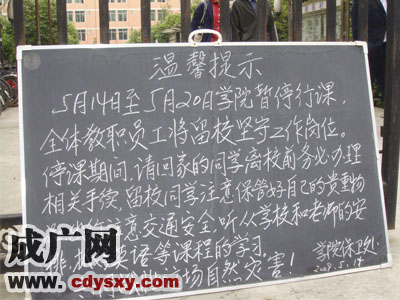 温馨提示
5月14日至5月20日学院暂停行课,
全体教职员工将留校坚守工作岗位。
停课期间,请回家的同学离校前务必办理
相关手续,留校同学注意保管好自己的贵重物
注意交通安全,听从学校和老师的安
排,英语等课程的学习,
场自然灾害!
学院保卫处
2008.5.14
成广网
www.cdysxy.com